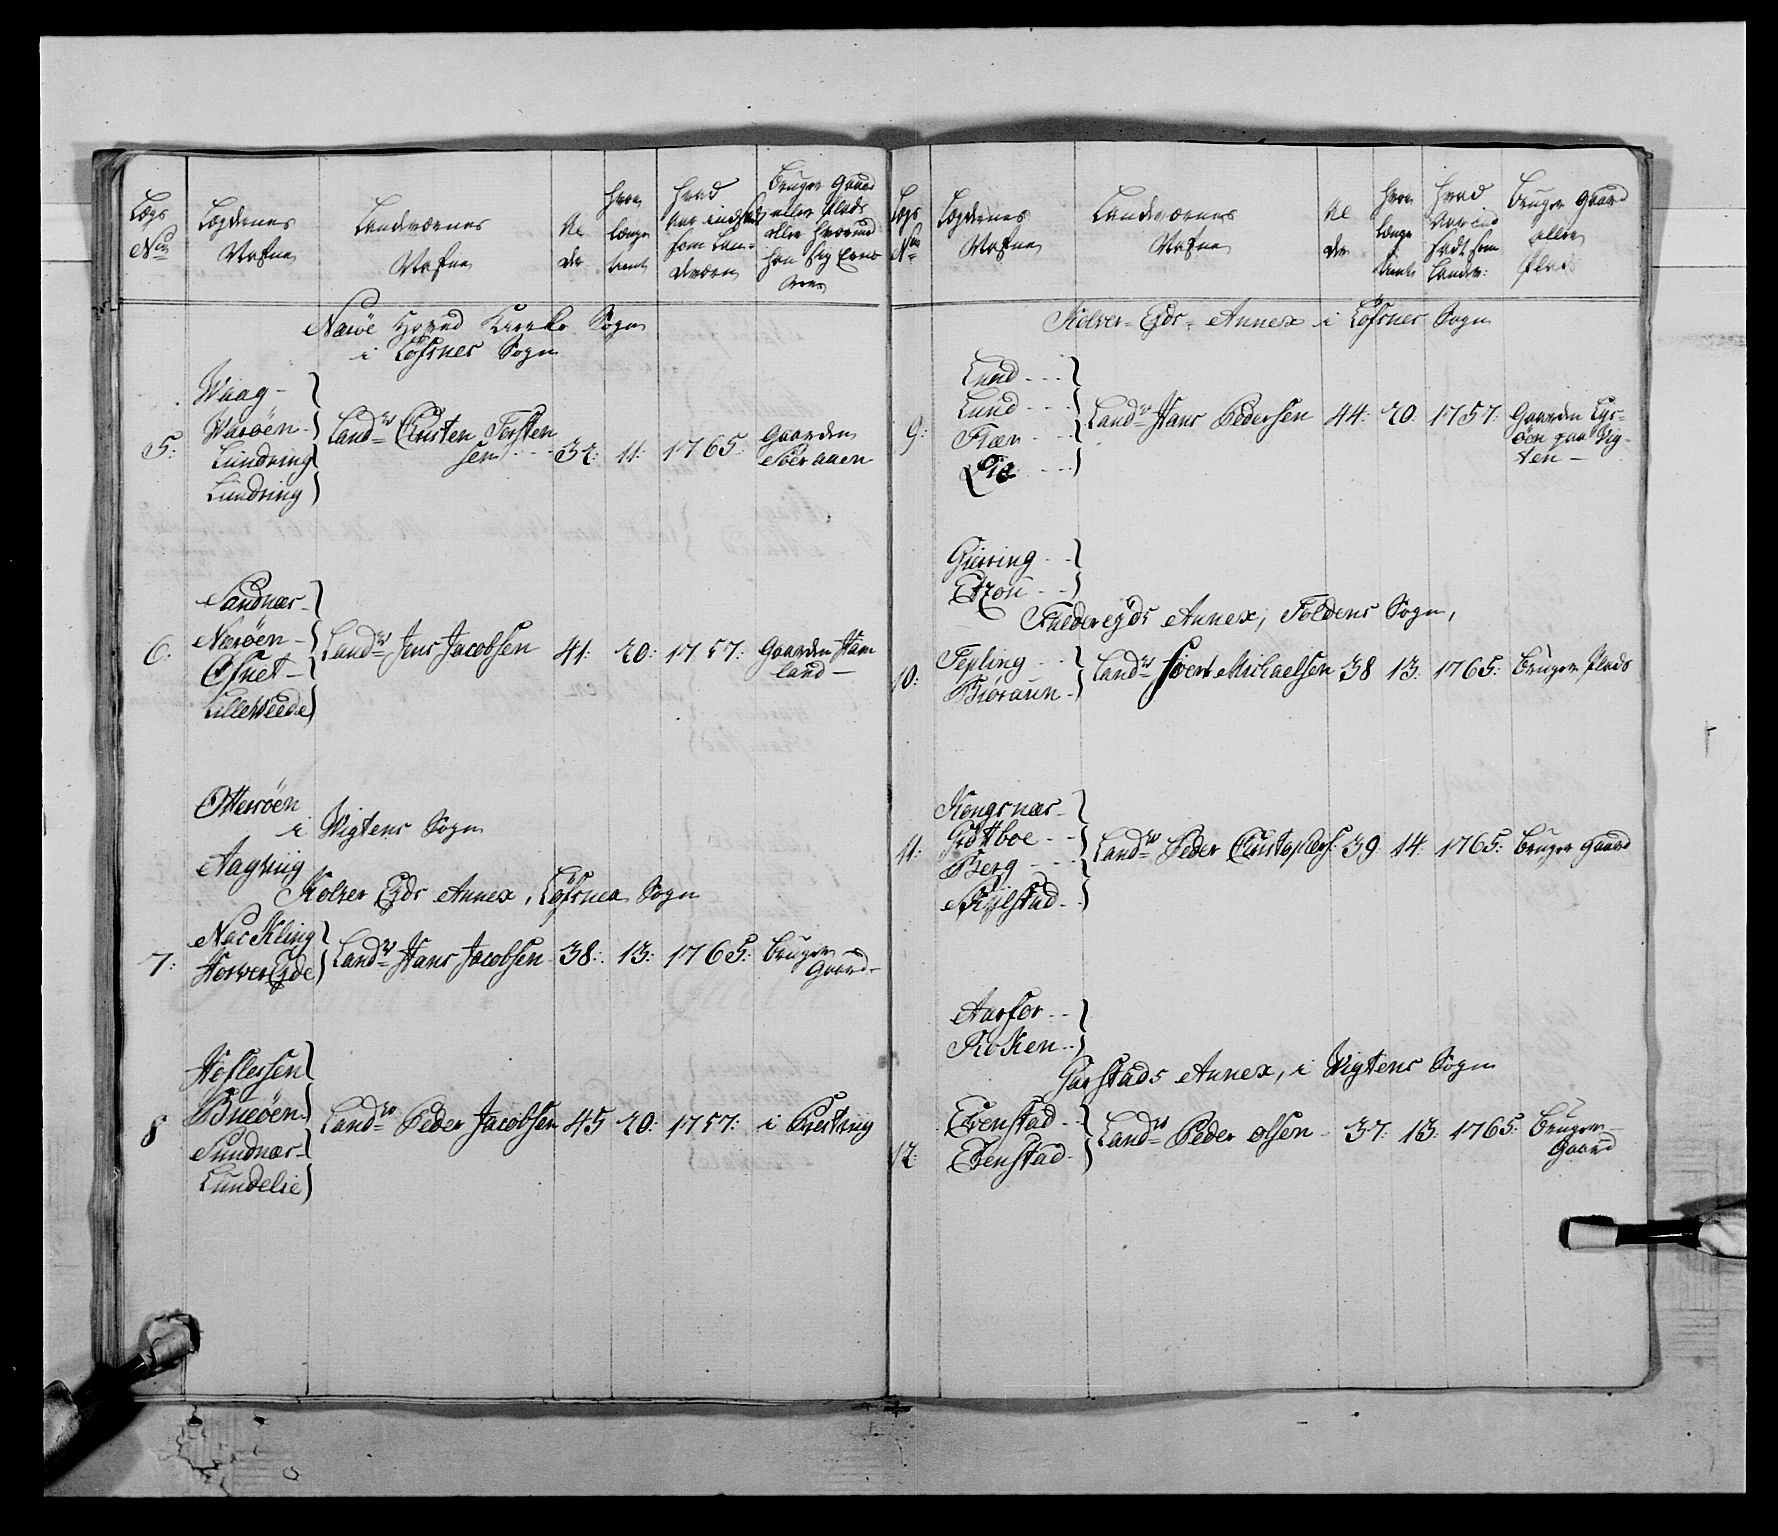 Lægs
No
Lægdernes
Nafne
Landværnes
Nafne
Al
der
hvor
længe
tient
hvad
Aar indsadt
som Lan-
dværn
bruger Gaard
eller Plads
eller hvorved
han sig Ernæ
rer
Næröe Hoved Kircke Sogn
i Löfsnes Sogn
5:
Waag -
Waröen -
Lundring
Lundring
Landv Christen Torsten
sen - - - 32: 11: 1765:
Gaarden
Sör aaen
6:
Sandnær -
Næröen -
Ofsnet -
Lilleweede
Landv Jens Jacobsen 41: 20: 1757: Gaarden Ham
land -
Otteröen
i Wigtens Sogn
Aagving
Kolver Eyds Annex, Löfsnes Sogn
7:
Nas Kling
HorverEyde
Landv Hans Jacobsen 38: 13: 1765: bruger
Gaard -
8
Hoflessen
Bueöen
Sundnær -
Lundelie
Landv Peder Jacobsen 45 20: 1757: i Præsting
Lægs
No
Lægdernes
Nafne
Landværnes
Nafne
Al
der
hvor
længe
tient
hvad
Aar ind
sadt som
Landv:
bruger Gaard
eller
Plads
Kolver - Eyds - Annex i Löfsnes Sogn
9:
Lund - - -
Lund - - -
Flær - - -
Lie - - -
Landv Hans Pedersen 44: 20: 1757: Gaarden Lys-
öen paa Vig-
ten -
Gierring - -
Eron - -
Falderejds Annex, Foldens Sogn,
10:
Tepling - -
Biöraun -
Landv Sivert Michaelsen 38 13: 1765: bruger Plads
11:
Kongsnær -
Grottboe - -
Berg - - -
Kylstad - -
Landv Peder Christophers: 39 14: 1765: bruger Gaard
Aarfor - -
Roken - -
Garstads Annex, i Wigtens Sogn
12:
Evenstad - -
Evenstad -
Landv Peder Olsen - 37: 13: 1765: bruger -
Gaard